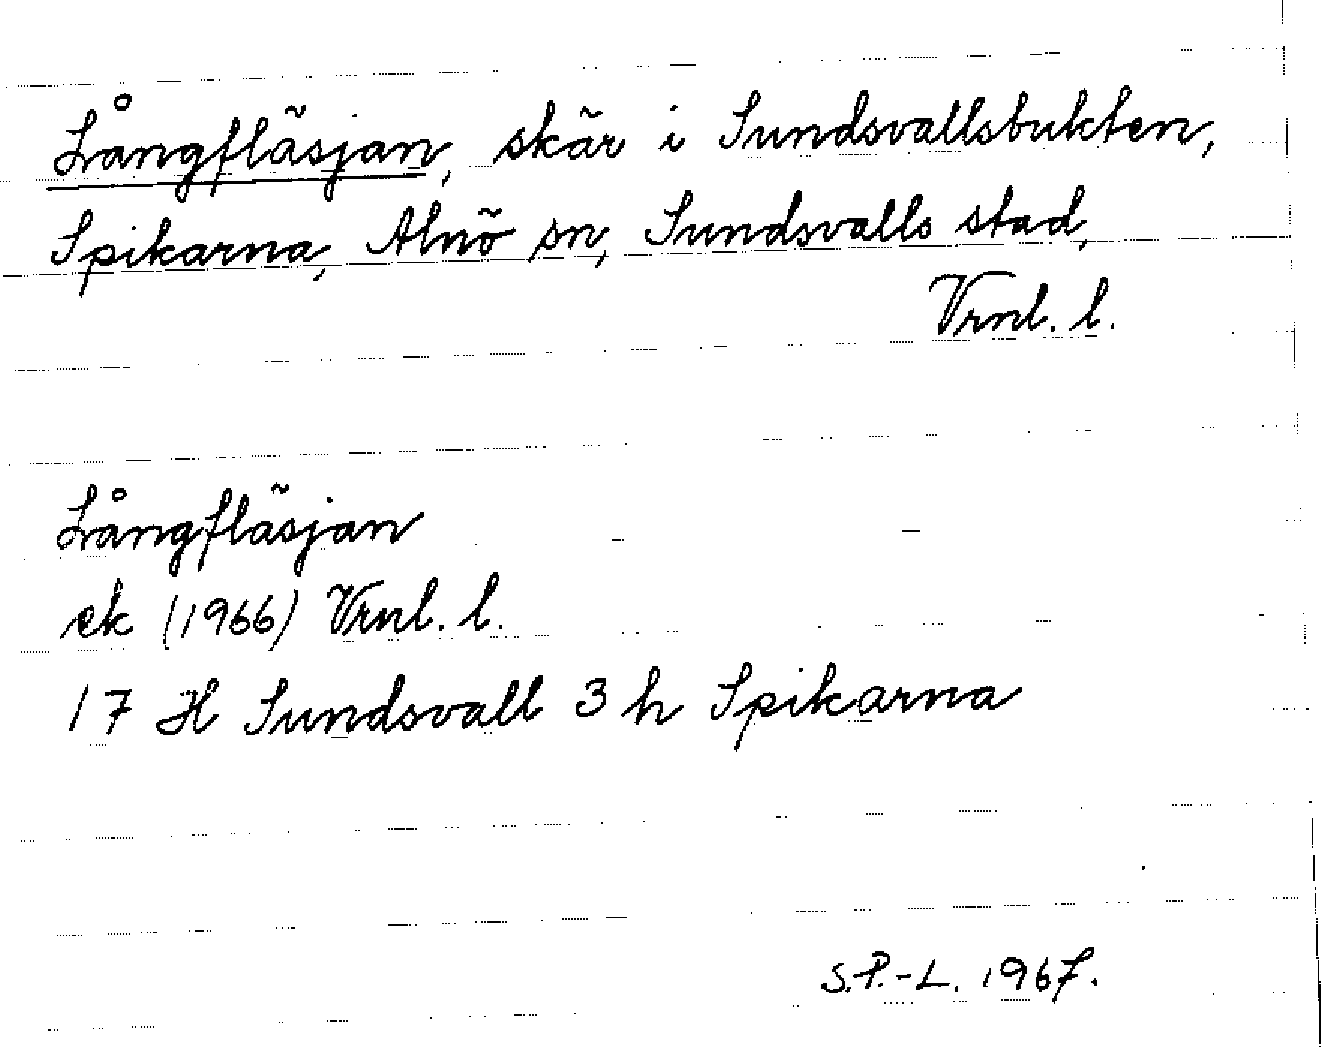 Långfläsjan, skär i Sundsvallsbukten,
Spikarna, Alnö sn, Sundsvalls stad,
Vrnl. l.
Långfläsjan
ek (1966) Vrnl. l.
17 H Sundsvall 3 h Spikarna
S.P.-L. 1967.